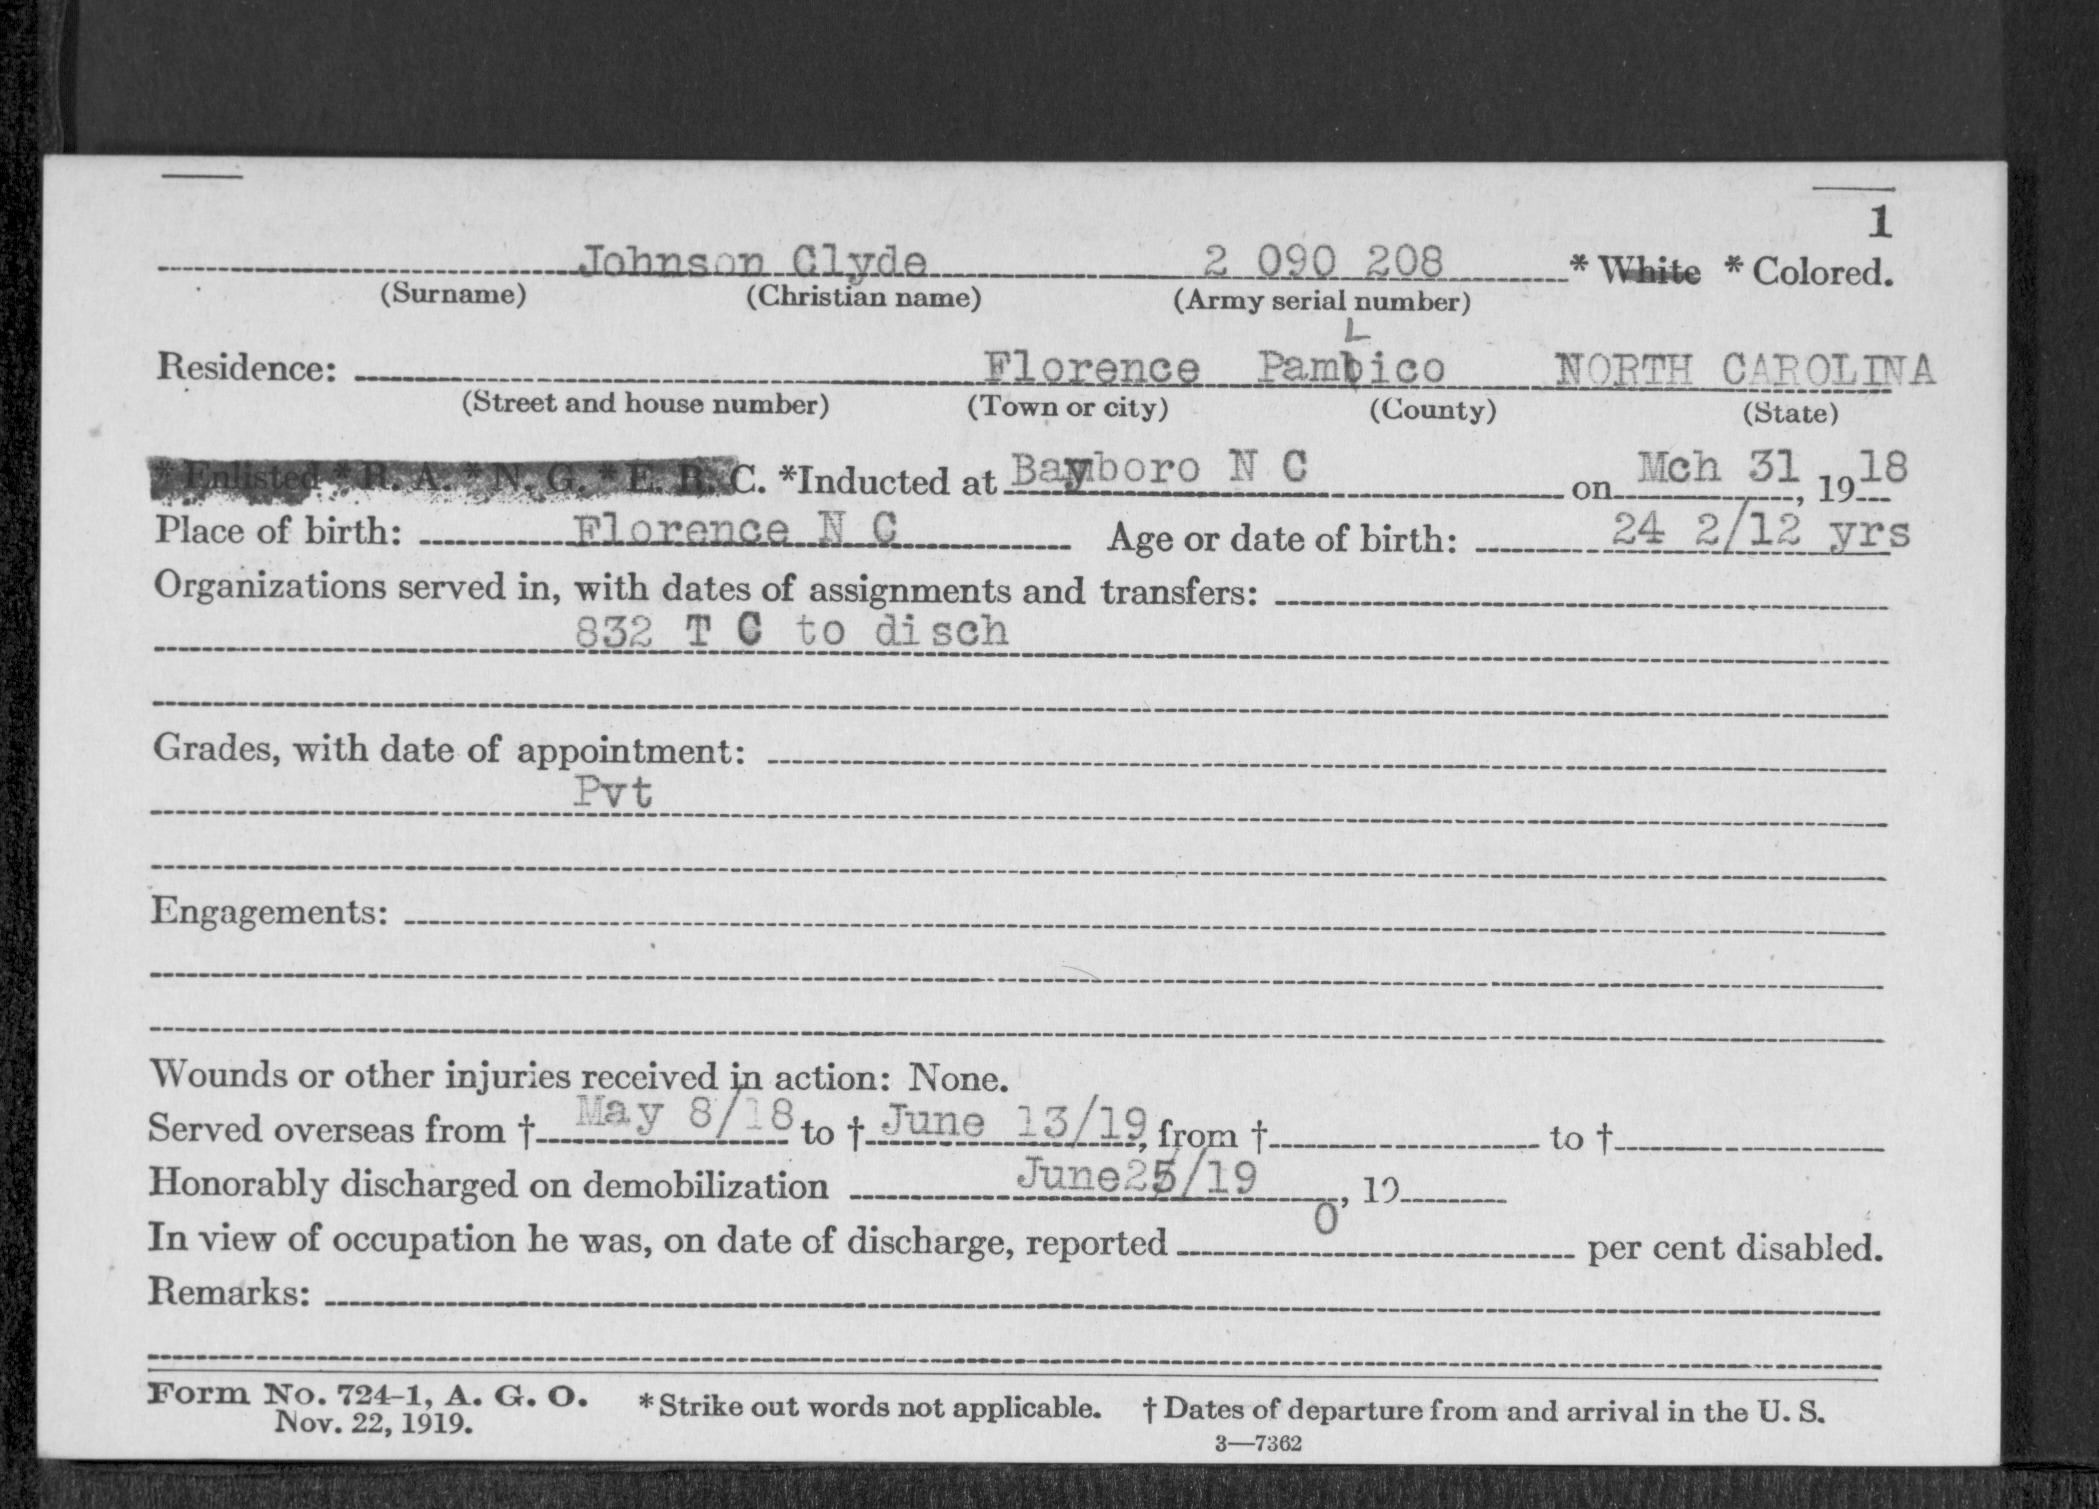 1
Johnson Clyde 2 090 208 * White * Colored.
(Surname) (Christian name) (Army serial number)
L
Residence: Florence Pambico NORTH CAROLINA
(Street and house number) (Town or city) (County) (State)
* Enlisted * R. A. * N. G. * E. R. C. *Inducted at Bayboro N C on Mch 31, 1918
Place of birth: Florence N C Age or date of birth: 24 2/12 yrs
Organizations served in, with dates of assignments and transfers:
832 T C to disch
Grades, with date of appointment:
Pvt
Engagements:
Wounds or other injuries received in action: None.
Served overseas from † May 8/18 to † June 13/19, from † to †
Honorably discharged on demobilization June25/19, 19
In view of occupation he was, on date of discharge, reported 0 per cent disabled.
Remarks:
Form No. 724-1, A. G. O. * Strike out words not applicable. † Dates of departure from and arrival in the U. S.
Nov. 22, 1919.
3—7362